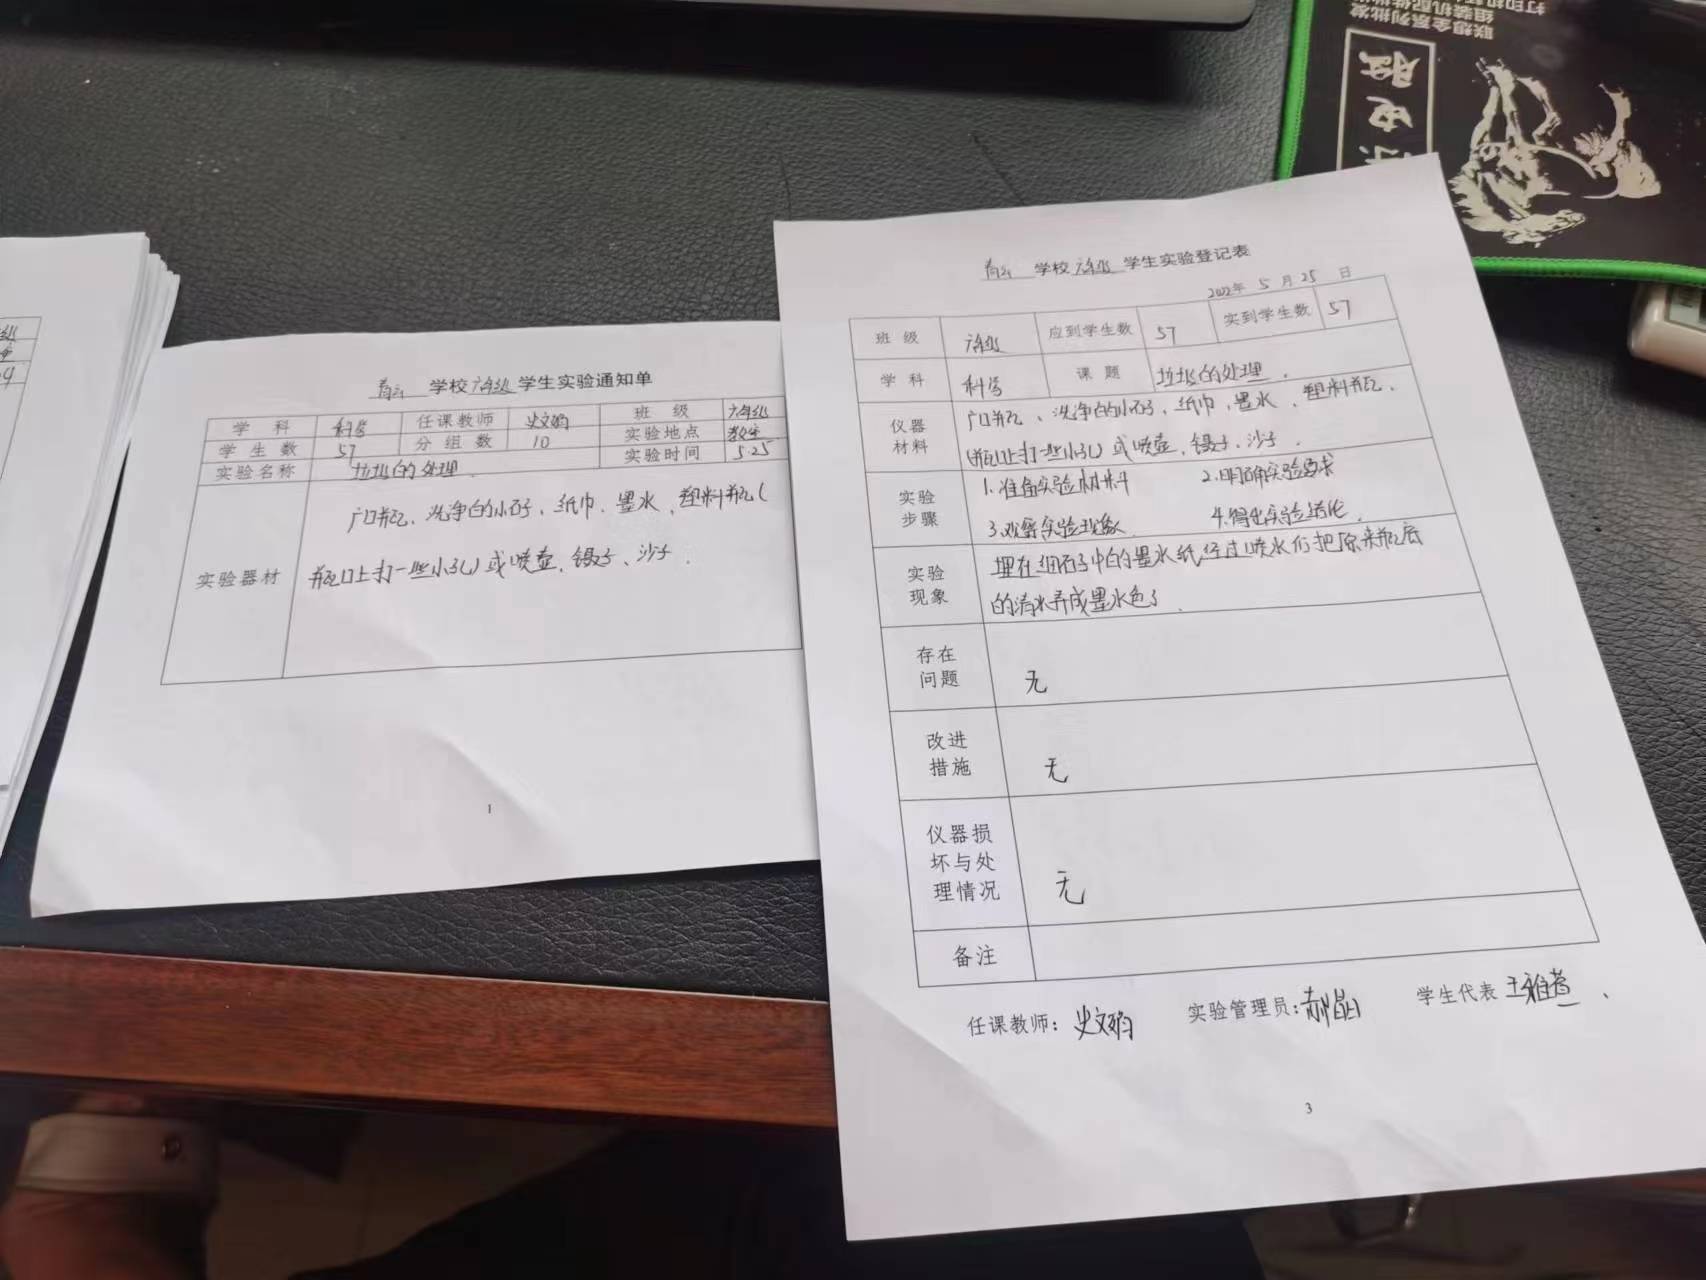 学校 六年级 学生实验通知单
学 科 科学 任课教师 史文娟 班 级 六年级
学 生 数 57 分 组 数 10 实验地点 教室
实验名称 垃圾的处理 实验时间 5.25
实验器材 广口瓶、洗净的小石子、纸巾、墨水、塑料瓶(
瓶口上打一些小孔)或喷壶、镊子、沙子.
1
学校 六年级 学生实验登记表
2022年 5 月 25 日
班 级 六年级 应到学生数 57 实到学生数 57
学 科 科学 课 题 垃圾的处理.
仪器材料 广口瓶、洗净的小石子、纸巾、墨水、塑料瓶、
(瓶口上打一些小孔)或喷壶、镊子、沙子.
实验步骤 1.准备实验材料 2.明确实验要求
3.观察实验现象 4.得出实验结论.
实验现象 埋在细石子中的墨水纸经过喷水后把原来瓶底
的清水弄成墨水色了.
存在问题 无
改进措施 无
仪器损坏与处理情况 无
备注
任课教师: 史文娟 实验管理员: 郝晶 学生代表 王雅萱
3
联想全系列批发